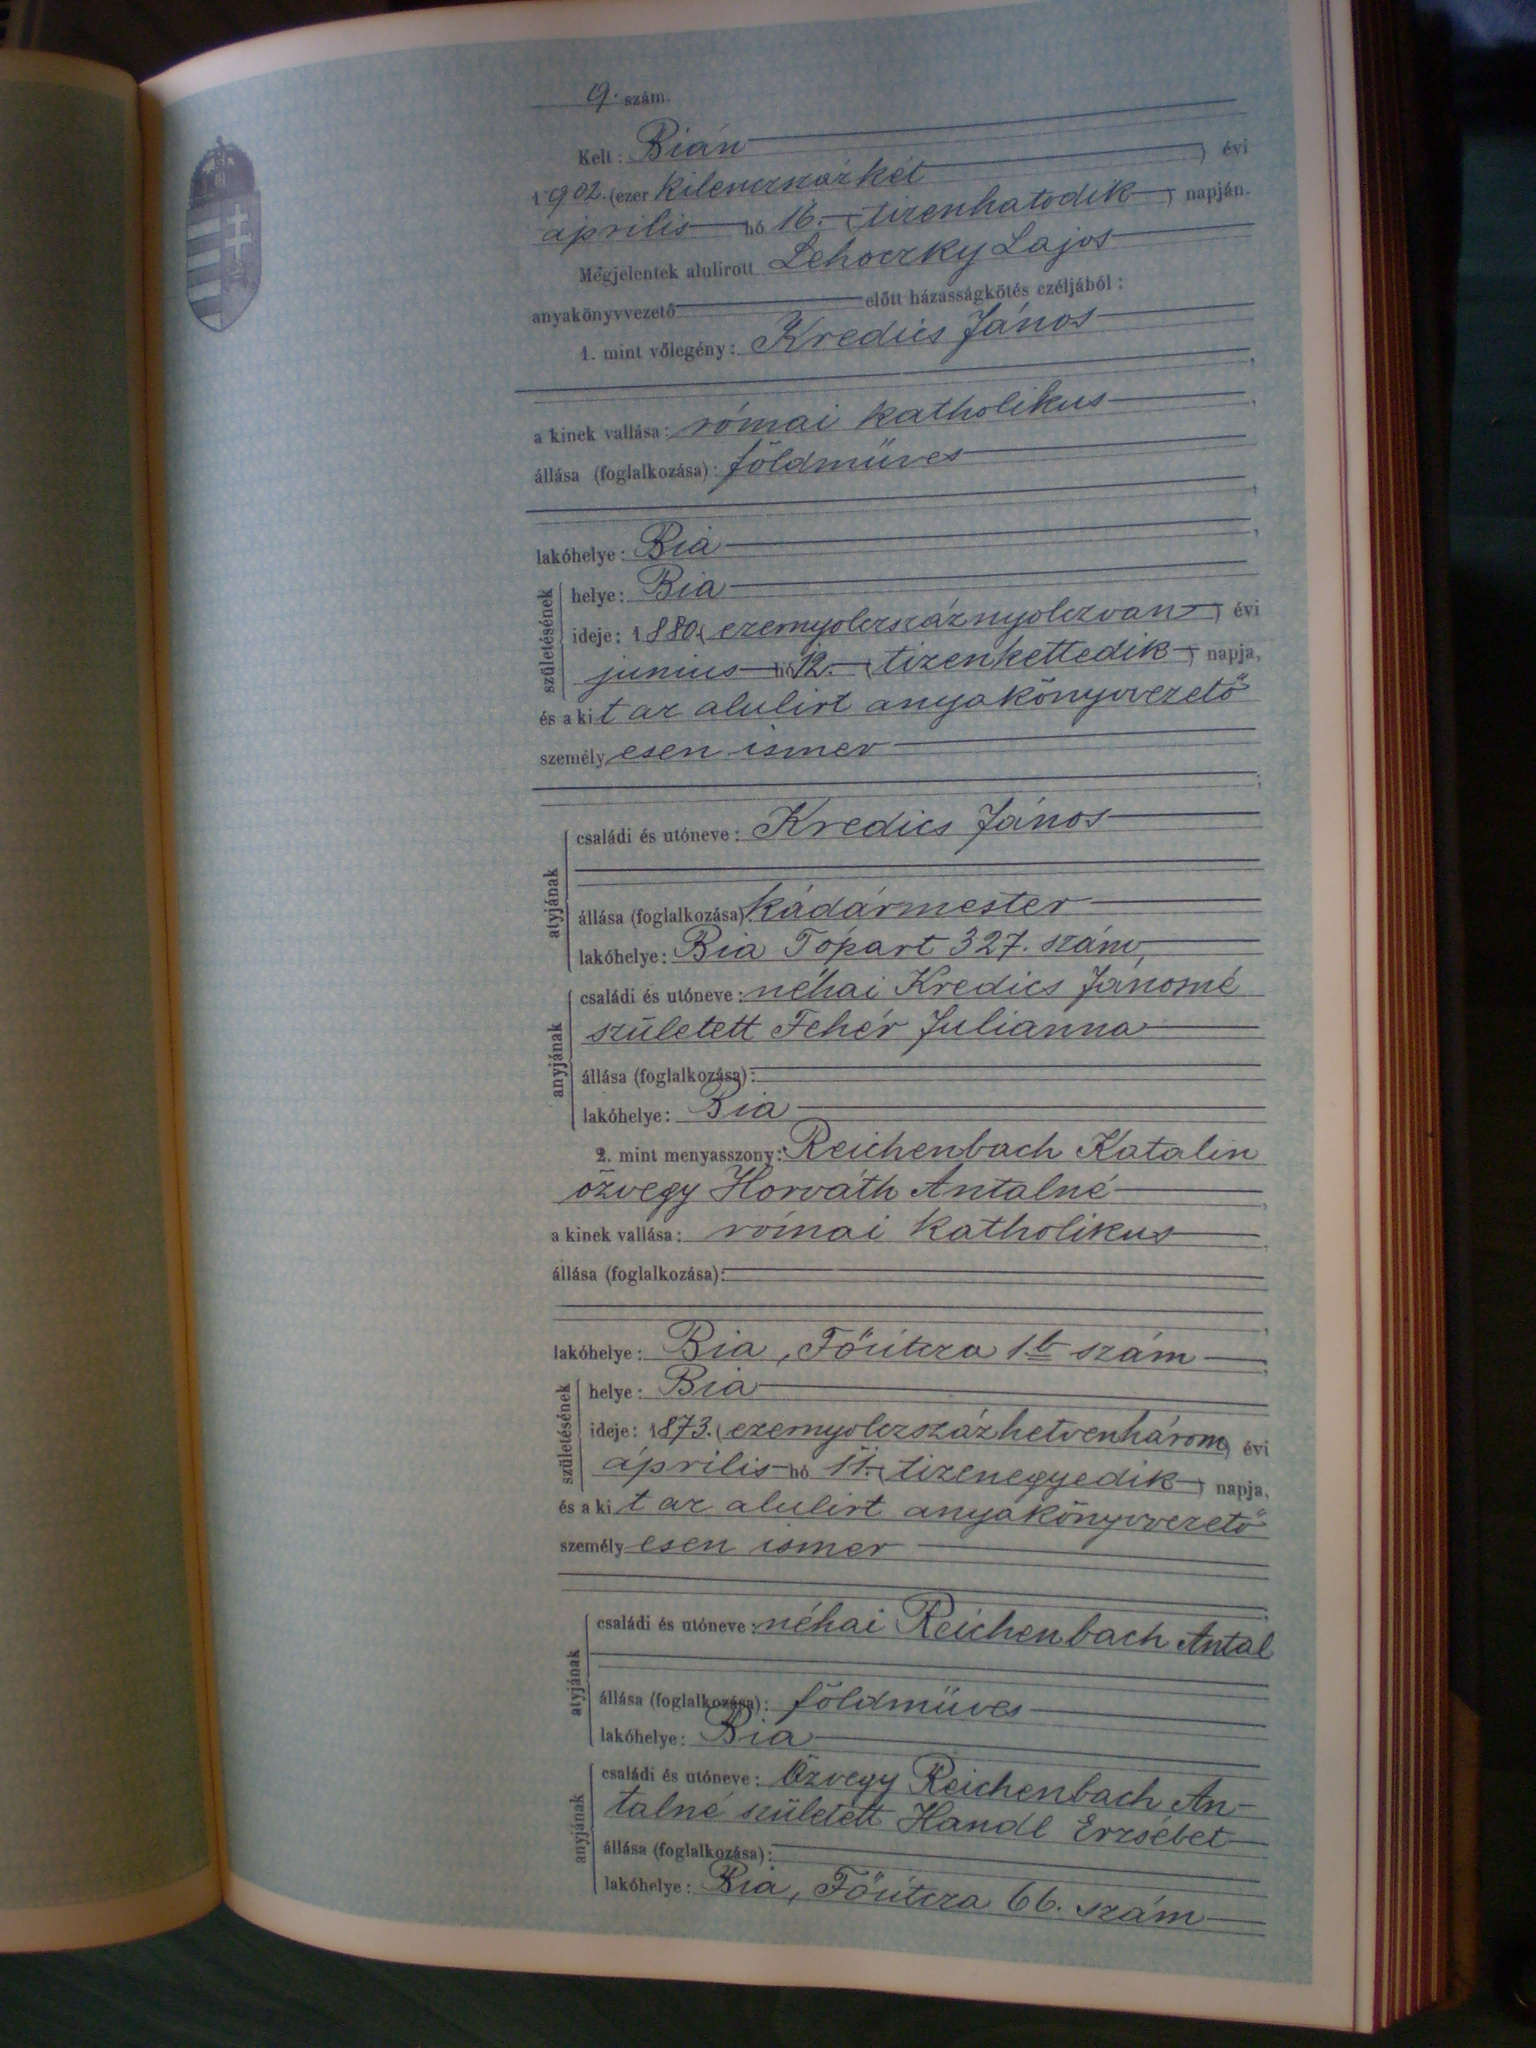 9. szám.
Kelt: Bián
1902. (ezer kilenczszázkét) évi
április hó 16. (tizenhatodik) napján.
Megjelentek alulirott Lehoczky Lajos
anyakönyvvezető előtt házasságkötés czéljából:
1. mint vőlegény: Kredics János
a kinek vallása: római katholikus
állása (foglalkozása): földmüves
lakóhelye: Bia
születésének
helye: Bia
ideje: 1880. (ezernyolczszáznyolczvan) évi
junius hó 12. (tizenkettedik) napja,
és a kit az alulirt anyakönyvvezető
személyesen ismer
atyjának
családi és utóneve: Kredics János
állása (foglalkozása): kádármester
lakóhelye: Bia Tópart 327. szám,
anyjának
családi és utóneve: néhai Kredics Jánosné
született Fehér Julianna
állása (foglalkozása):
lakóhelye: Bia
2. mint menyasszony: Reichenbach Katalin
özvegy Horváth Antalné
a kinek vallása: római katholikus
állása (foglalkozása):
lakóhelye: Bia, Főútcza 1.b szám
születésének
helye: Bia
ideje: 1873. (ezernyolczszázhetvenhárom) évi
április hó 11. (tizenegyedik) napja,
és a kit az alulirt anyakönyvvezető
személyesen ismer
atyjának
családi és utóneve: néhai Reichenbach Antal
állása (foglalkozása): földmüves
lakóhelye: Bia
anyjának
családi és utóneve: Özvegy Reichenbach An-
talné született Handl Erzsébet
állása (foglalkozása):
lakóhelye: Bia, Főútcza 66. szám